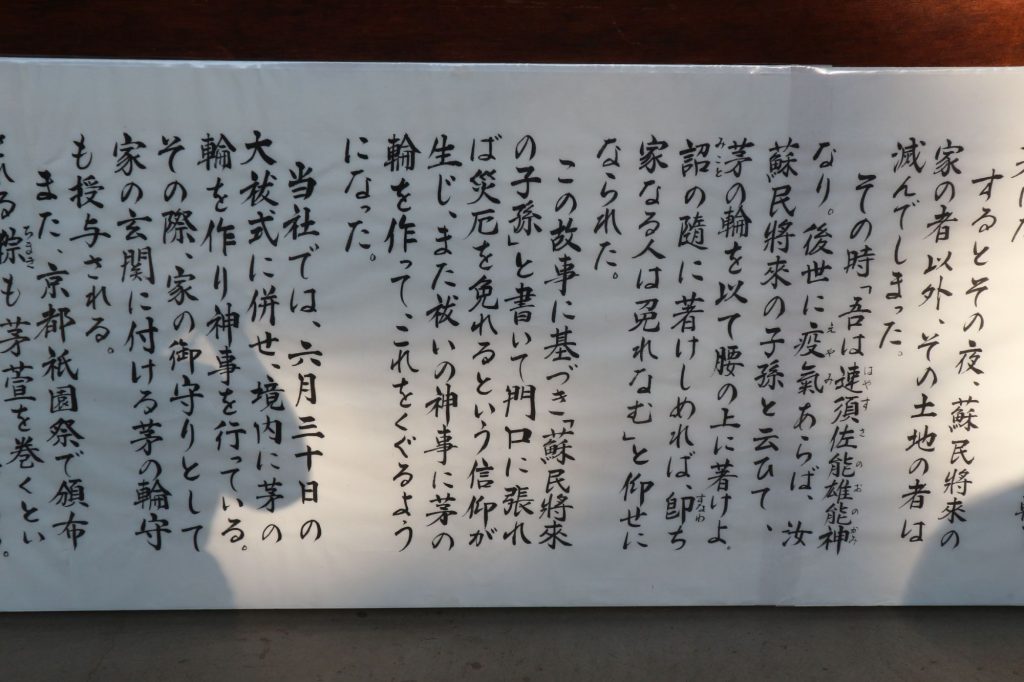 するとその夜、蘇民將來の
家の者以外、その土地の者は
滅んでしまった。
その時「吾は速須佐能雄能神
なり。後世に疫氣あらば、汝
蘇民將來の子孫と云ひて、
茅の輪を以て腰の上に著けよ。
詔の隨に著けしめれば、即ち
家なる人は免れなむ」と仰せに
なられた。
この故事に基づき「蘇民將來
の子孫」と書いて門口に張れ
ば災厄を免れるという信仰が
生じ、また祓いの神事に茅の
輪を作って、これをくぐるよう
になった。
当社では、六月三十日の
大祓式に併せ、境内に茅の
輪を作り神事を行っている。
その際、家の御守りとして
家の玄関に付ける茅の輪守
も授与される。
また、京都祇園祭で頒布
される粽も茅萱を巻くとい